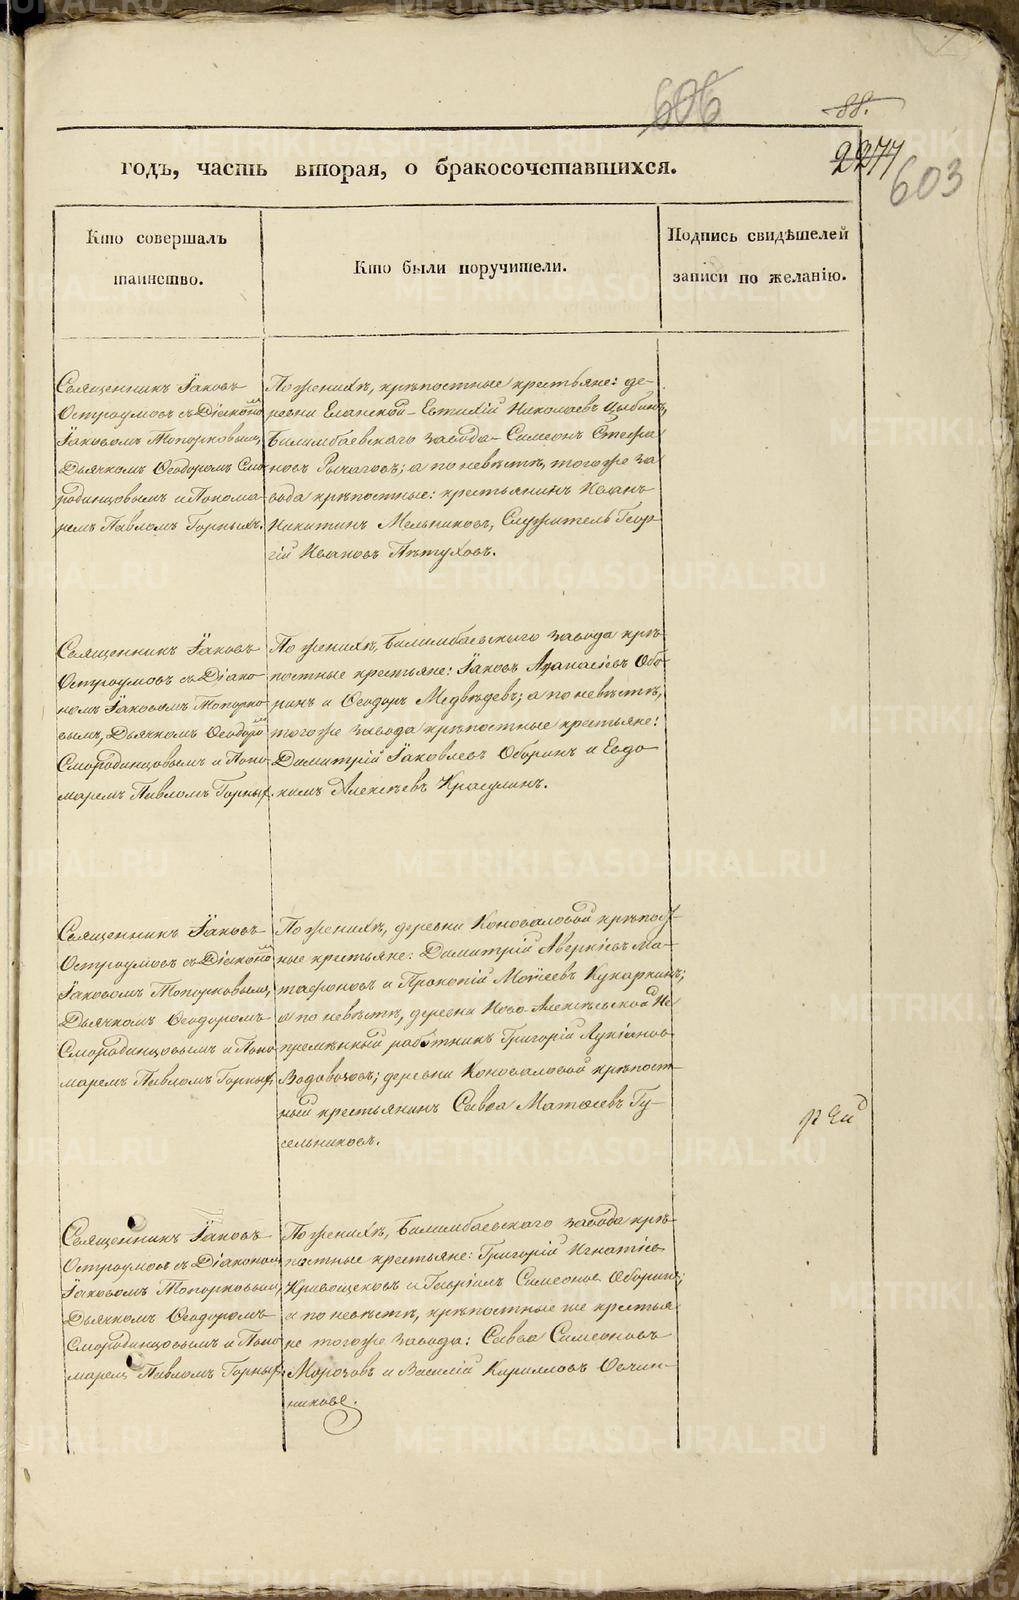 606
88.
2277
603
годъ, часть вторая, о бракосочетавшихся.
Кто совершалъ
таинство.
Кто были поручители.
Подпись свидѣтелей
записи по желанію.
Священникъ Іаковъ
Остроумовъ съ Діакономъ
Іаковомъ Топорковымъ,
Дьячкомъ Ѳеодоромъ Смо-
родинцовымъ и Понома-
ремъ Павломъ Горныхъ.
По женихѣ, крѣпостные крестьяне: де-
ревни Еланской - Евѳимій Николаевъ Цыбинъ,
Билимбаевскаго завода - Симеонъ Стефа
новъ Рычаговъ; а по невѣстѣ, того же за
вода крѣпостные: крестьянинъ Иванъ
Никитинъ Мельниковъ, Служитель Геор-
гій Ивановъ Пѣтуховъ.
Священникъ Іаковъ
Остроумовъ съ Діако
номъ Іаковомъ Топорко-
вымъ, Дьячкомъ Ѳеодоромъ
Смородинцовымъ и Поно-
маремъ Павломъ Горныхъ.
По женихѣ, Билимбаевскаго завода крѣ-
постные крестьяне: Іаковъ Аѳанасіевъ Обо-
ринъ и Ѳеодоръ Медвѣдевъ; а по невѣстѣ,
того же завода крѣпостные крестьяне:
Димитрій Іаковлевъ Оборинъ и Евдо
кимъ Алексѣевъ Красулинъ.
Священникъ Іаковъ
Остроумовъ съ Діакономъ
Іаковомъ Топорковымъ,
Дьячкомъ Ѳеодоромъ
Смородинцовымъ и Поно-
маремъ Павломъ Горныхъ.
По женихѣ, деревни Коноваловой крѣпост-
ные крестьяне: Димитрій Аверкіевъ Ма-
тафоновъ и Прокопій Моѵсеевъ Кукаркинъ;
а по невѣстѣ, деревни Ново Алексѣевской Не
премѣнный работникъ Григорій Лукіановъ
Водовозовъ; деревни Коноваловой крѣпост-
ный крестьянинъ Савва Матѳеевъ Гу-
сельниковъ.
Священникъ Іаковъ
Остроумовъ съ Діакономъ
Іаковомъ Топорковымъ,
Дьячкомъ Ѳеодоромъ
Смородинцовымъ и Поно
маремъ Павломъ Горныхъ.
По женихѣ, Билимбаевскаго завода крѣ-
постные крестьяне: Григорій Игнатіевъ
Кривощековъ и Гавріилъ Симеоновъ Оборинъ;
а по невѣстѣ, крѣпостные же крестья
не того же завода: Савва Симеоновъ
Морозовъ и Василій Кирилловъ Овчин-
никовъ.